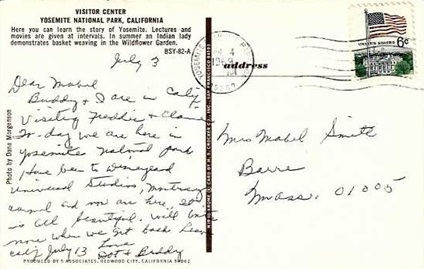 VISITOR CENTER
YOSEMITE NATIONAL PARK, CALIFORNIA
Here you can learn the story of Yosemite. Lectures and
movies are given at intervals. In summer an Indian lady
demonstrates basket weaving in the Wildflower Garden.
BSY-82-A
July 3
Dear Mabel
Buddy & I are in Calif
Visiting Freddie &
To-day we are here in
Yosemite National park
Have been to Disneyland
Universal Studios, Monterey
and now are here, so
is all beautiful. Will write
more when we get back Leave
Calif July 13 Love
Dot & Buddy
Photo by Dana Morgenson
PRODUCED BY ASSOCIATES, REDWOOD CITY, CALIFORNIA
address
YOSEMITE
4
UNITED STATES
6c
Mrs Mabel Smith
Barre
Mass. 01005